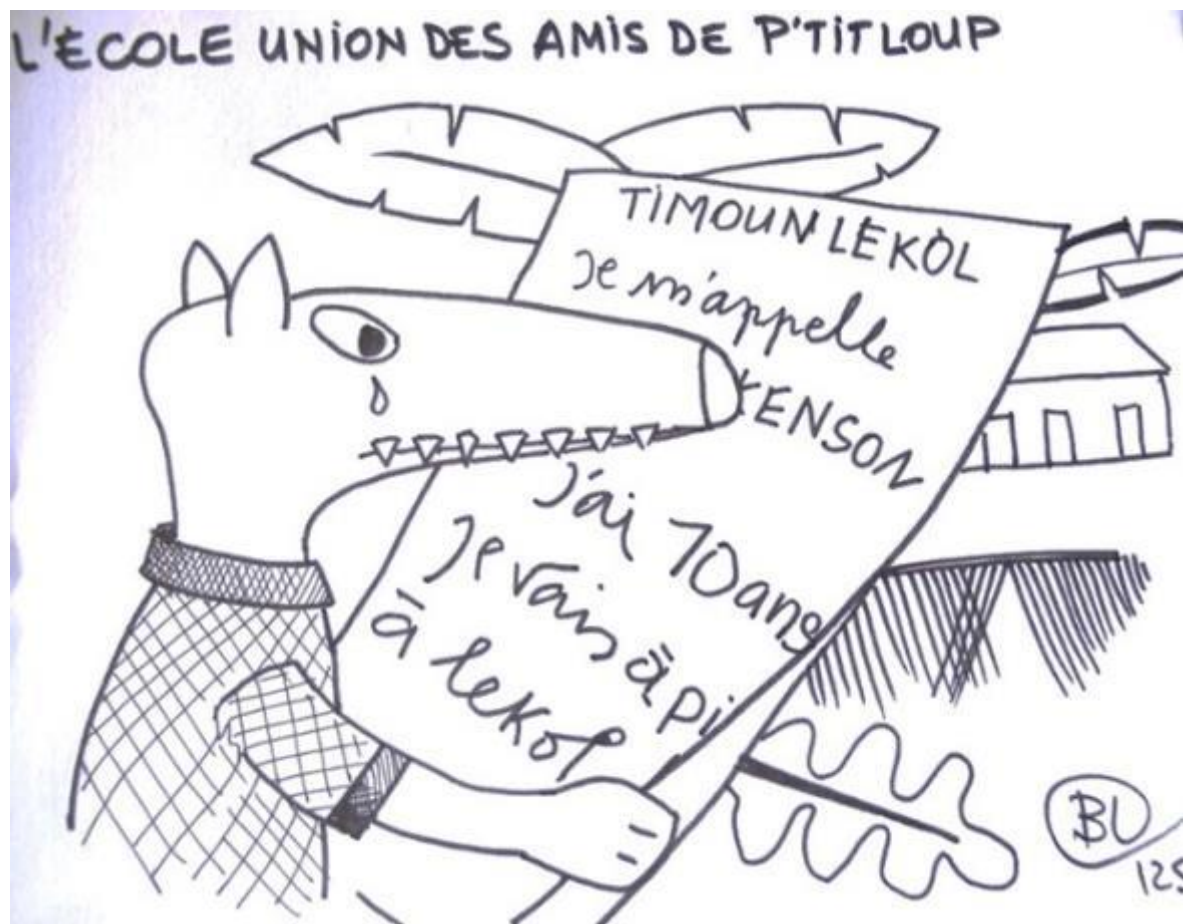 L'ÉCOLE UNION DES AMIS DE P'TIT LOUP
TIMOUN LEKOL
Je m'appelle
KENSON
J'ai 10 ans
Je vais à pi
à lekol
BU
125